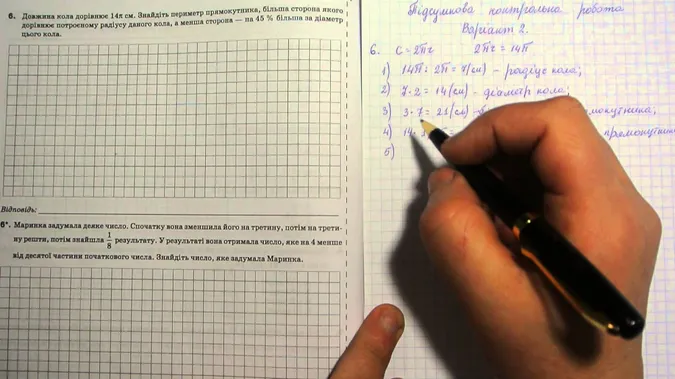 6. Довжина кола дорівнює 14π см. Знайдіть периметр прямокутника, більша сторона якого
дорівнює потроєному радіусу даного кола, а менша сторона — на 45 % більша за діаметр
цього кола.
Відповідь:
6*. Маринка задумала деяке число. Спочатку вона зменшила його на третину, потім на трети-
ну решти, потім знайшла 1/8 результату. У результаті вона отримала число, яке на 4 менше
від десятої частини початкового числа. Знайдіть число, яке задумала Маринка.
Підсумкова контрольна робота
Варіант 2.
6. C = 2πr 2πr = 14π
1) 14π : 2π = 7(см) – радіус кола;
2) 7·2 = 14(см) – діаметр кола;
3) 3·7 = 21(см) –
4) 14· = прямокутник
5)